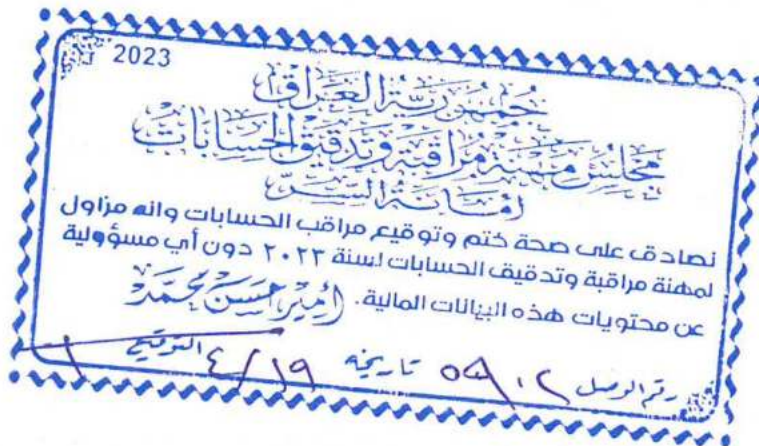 2023
جمهورية العراق
مجلس مهنة مراقبة وتدقيق الحسابات
امانة السر
نصادق على صحة ختم وتوقيع مراقب الحسابات وانه مزاول
لمهنة مراقبة وتدقيق الحسابات لسنة ٢٠٢٣ دون أي مسؤولية
عن محتويات هذه البيانات المالية. أمير حسن محمد
رقم الوصل تاريخه ٤/١٩ التوقيع